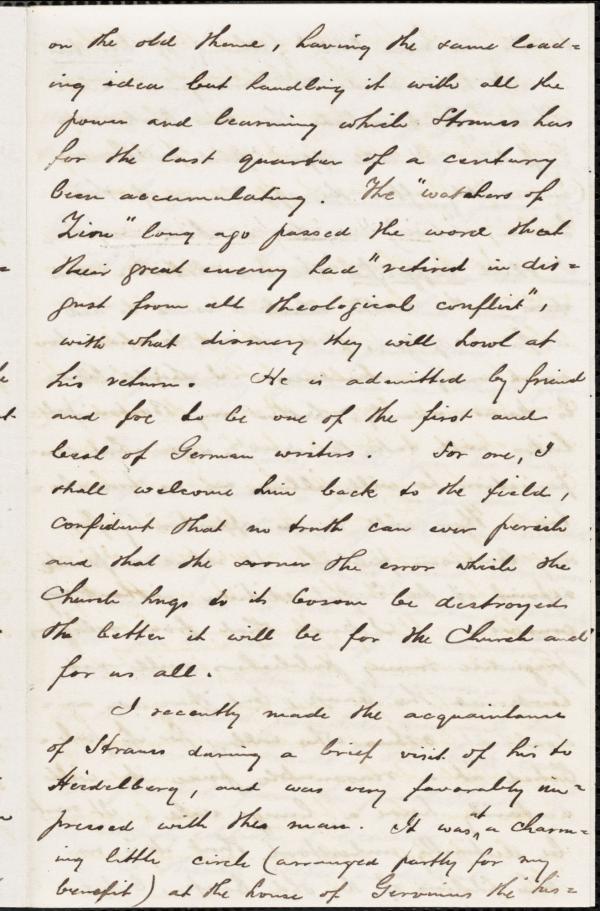 on the old theme, having the same lead=
ing idea but handling it with all the
power and learning which Strauss has
for the last quarter of a century
been accumulating. The "watchers of
Zion" long ago passed the word that
their great enemy had "retired in dis=
gust from all theological conflict",
with what dismay they will howl at
his return. He is admitted by friend
and foe to be one of the first and
best of German writers. For one, I
shall welcome him back to the field,
confident that no truth can ever perish
and that the sooner the error which the
Church hugs to its bosom be destroyed
the better it will be for the Church and
for us all.
I recently made the acquaintance
of Strauss during a brief visit of his to
Heidelberg, and was very favorably im=
pressed with the man. It was at a charm=
ing little circle (arranged partly for my
benefit) at the house of Gervinus the his=